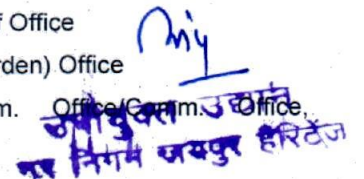 Office
rden) Office
m. Office/Comm. Office,
उपायुक्त उद्यान
नगर निगम जयपुर हैरिटेज